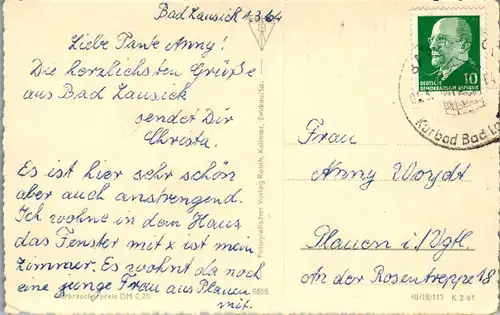 Bad Lausick 1.3.64
Liebe Tante Anny!
Die herzlichsten Grüße
aus Bad Lausick
sendet Dir
Christa.
Es ist hier sehr schön
aber auch anstrengend.
Ich wohne in dem Haus
das Fenster mit x ist mein
Zimmer. Es wohnt da noch
eine junge Frau aus Plauen
mit.
Verbraucherpreis DM 0,20
8655
Fotografischer Verlag Reinh. Kallmer, Zwickau/Sa.
10
DEUTSCHE
DEMOKRATISCHE REPUBLIK
Kurbad Bad
Frau
Anny Woydt
Plauen i./Vgtl.
An der Rosentreppe 18
III/18/117 K 2 61